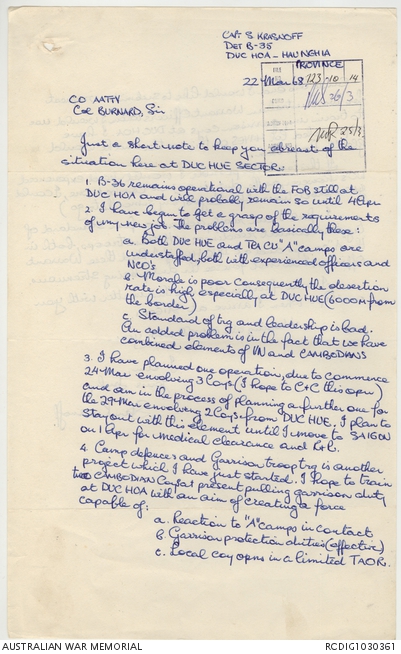 CAPT S KRASNOFF
DET B-35
DUC HOA - HAU NGHIA
PROVINCE
22 Mar 68
123 - 10 14
26/3
25/3
CO AATTV
Col BURNARD, Sir
Just a short note to keep you abreast of the
situation here at DUC HUE SECTOR:
1. B-36 remains operational with the FOB still at
DUC HOA and will probably remain so until 4 Apr
2. I have begun to get a grasp of the requirements
of my new job. The problems are basically these:
a. Both DUC HUE and TRA CU "A" camps are
understaffed, both with experienced officers and
NCO's
b. Morale is poor. Consequently the desertion
rate is high, especially at DUC HUE (6000m from
the border)
c. Standard of trg and leadership is bad.
An added problem is in the fact that we have
combined elements of VN and CAMBODIANS
3. I have planned one operation, due to commence
24-Mar envolving 3 Coys (I hope to C+C this opn)
and am in the process of planning a further one for
the 29-Mar envolving 2 Coys from DUC HUE. I plan to
start out with this element until I move to SAIGON
on 1 Apr for medical clearance and R+R.
4. Camp defences and Garrison troop trg is another
project which I have just started. I hope to train
two CAMBODIAN Coys at present pulling garrison duty
at DUC HOA with an aim of creating a force
capable of:
a. Reaction to "A" camps in contact
b. Garrison protection duties (effective)
c. Local coy opns in a limited TAOR.
AUSTRALIAN WAR MEMORIAL
RCDIG1030361